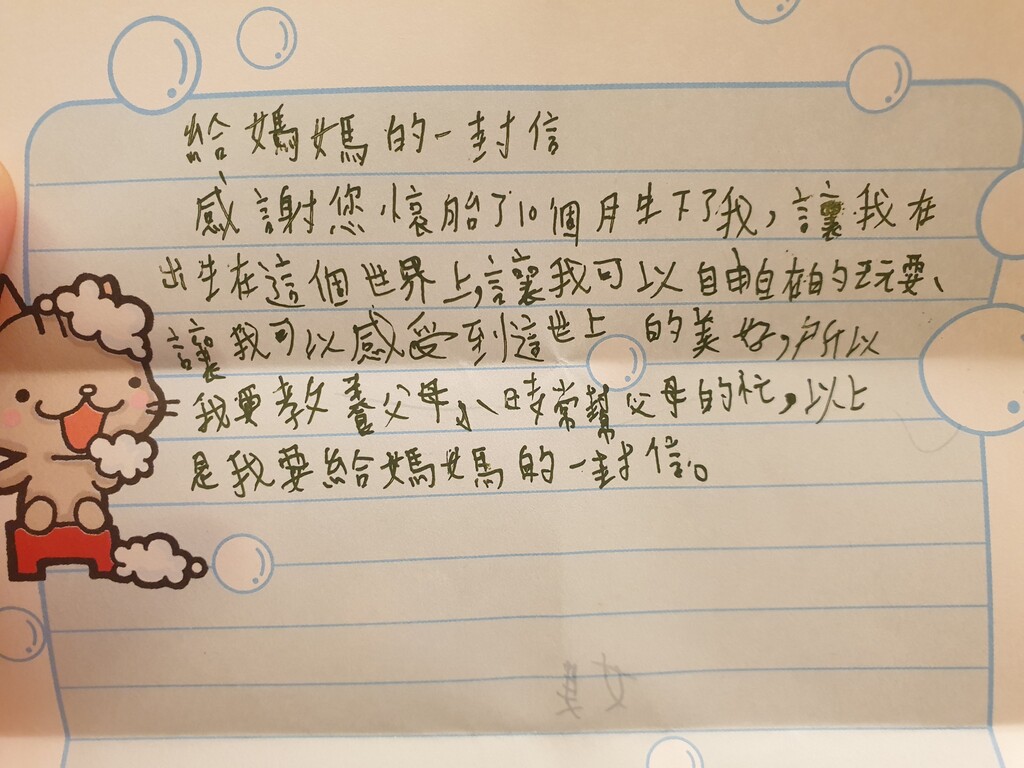 給媽媽的一封信
感謝您懷胎了10個月生下了我，讓我在
出生在這個世界上，讓我可以自由自在的玩耍、
讓我可以感受到這世上的美好，所以
我要教養父母、時常幫父母的忙，以上
是我要給媽媽的一封信。